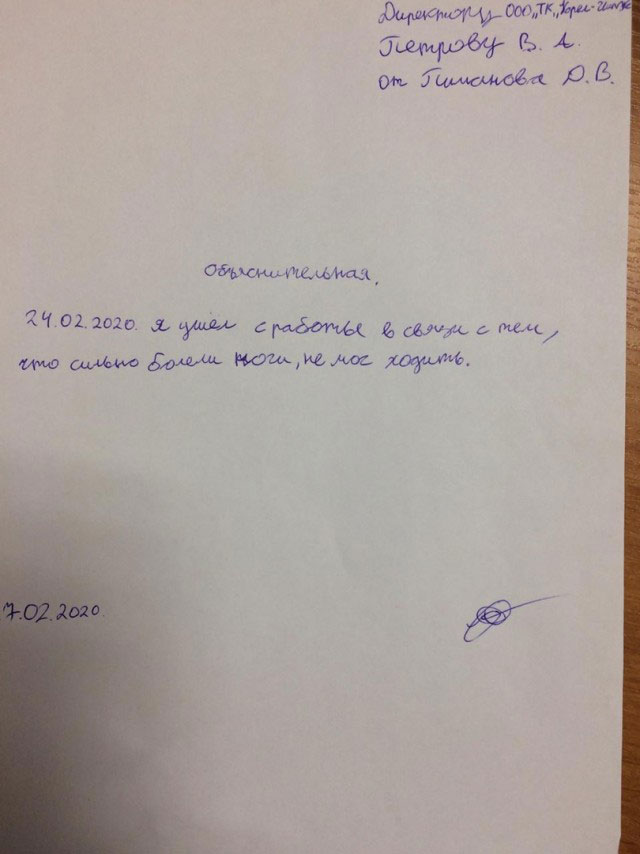 Директору ООО „ТК „
Петрову В. А.
от Пиманова Д. В.
Объяснительная.
24.02.2020. я ушел с работье в связи с тем,
что сильно болели ноги, не мог ходить.
7.02.2020.